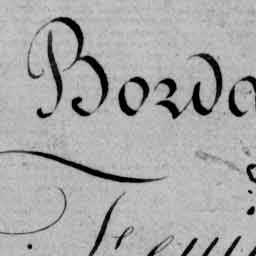 Borda
Feui